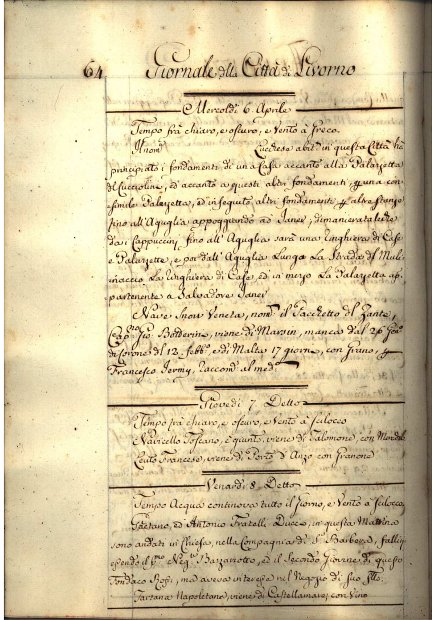 64 Giornale della Città di Livorno
Mercoldì 6 Aprile
Tempo frà chiaro, e oscuro, e Vento à Greco.
Il nom.
Lucchese abit.e in questa Città hà
principiato i fondamenti di una Casa accanto alla Palazzetta
ed accanto a questi altri fondamenti una con
simile Palazzetta, ed in seguito altri fondamenti altre stanze
fino all'Aguglia appoggiando ad Janer, dimanierata
da i Cappuccini fino all'Aguglia sarà una linghiera di Case
e Palazzette, e poi dall'Aguglia Lungo La Strada del Mul
inaccio La linghiera di Case, ed in mezo La Palazzetta ap
partenente a Salvadore Janer
Nave Snow Veneta, nom. il Pacchetto del Zante,
Cap. Gio viene di manca dal 26
di Corone il 12 febb. e di Malta 17 giorni, con Grano,
Francesco Jermy, Raccom. al med.
Giovedì 7 Detto
Tempo frà chiaro, e oscuro, e Vento à Scilocco
Navicello Toscano, è quint. viene di Talomone, con
Leuto Francese, viene di Porto d'Anzo con Granone
Venardì 8 Detto
Tempo Acqua continova tutto il Giorno, e Vento à Scilocco,
Gaetano, ed Antonio Fratelli in questa Mattina
sono andati in Chiesa, nella Compagnia di S. Barbera,
essendo il p.mo Neg. ed il Secondo Giovine di questo
Fondaco ma aveva interessi nel Negozio di Suo
Tartana Napoletana, viene di Castellamare; con Vino